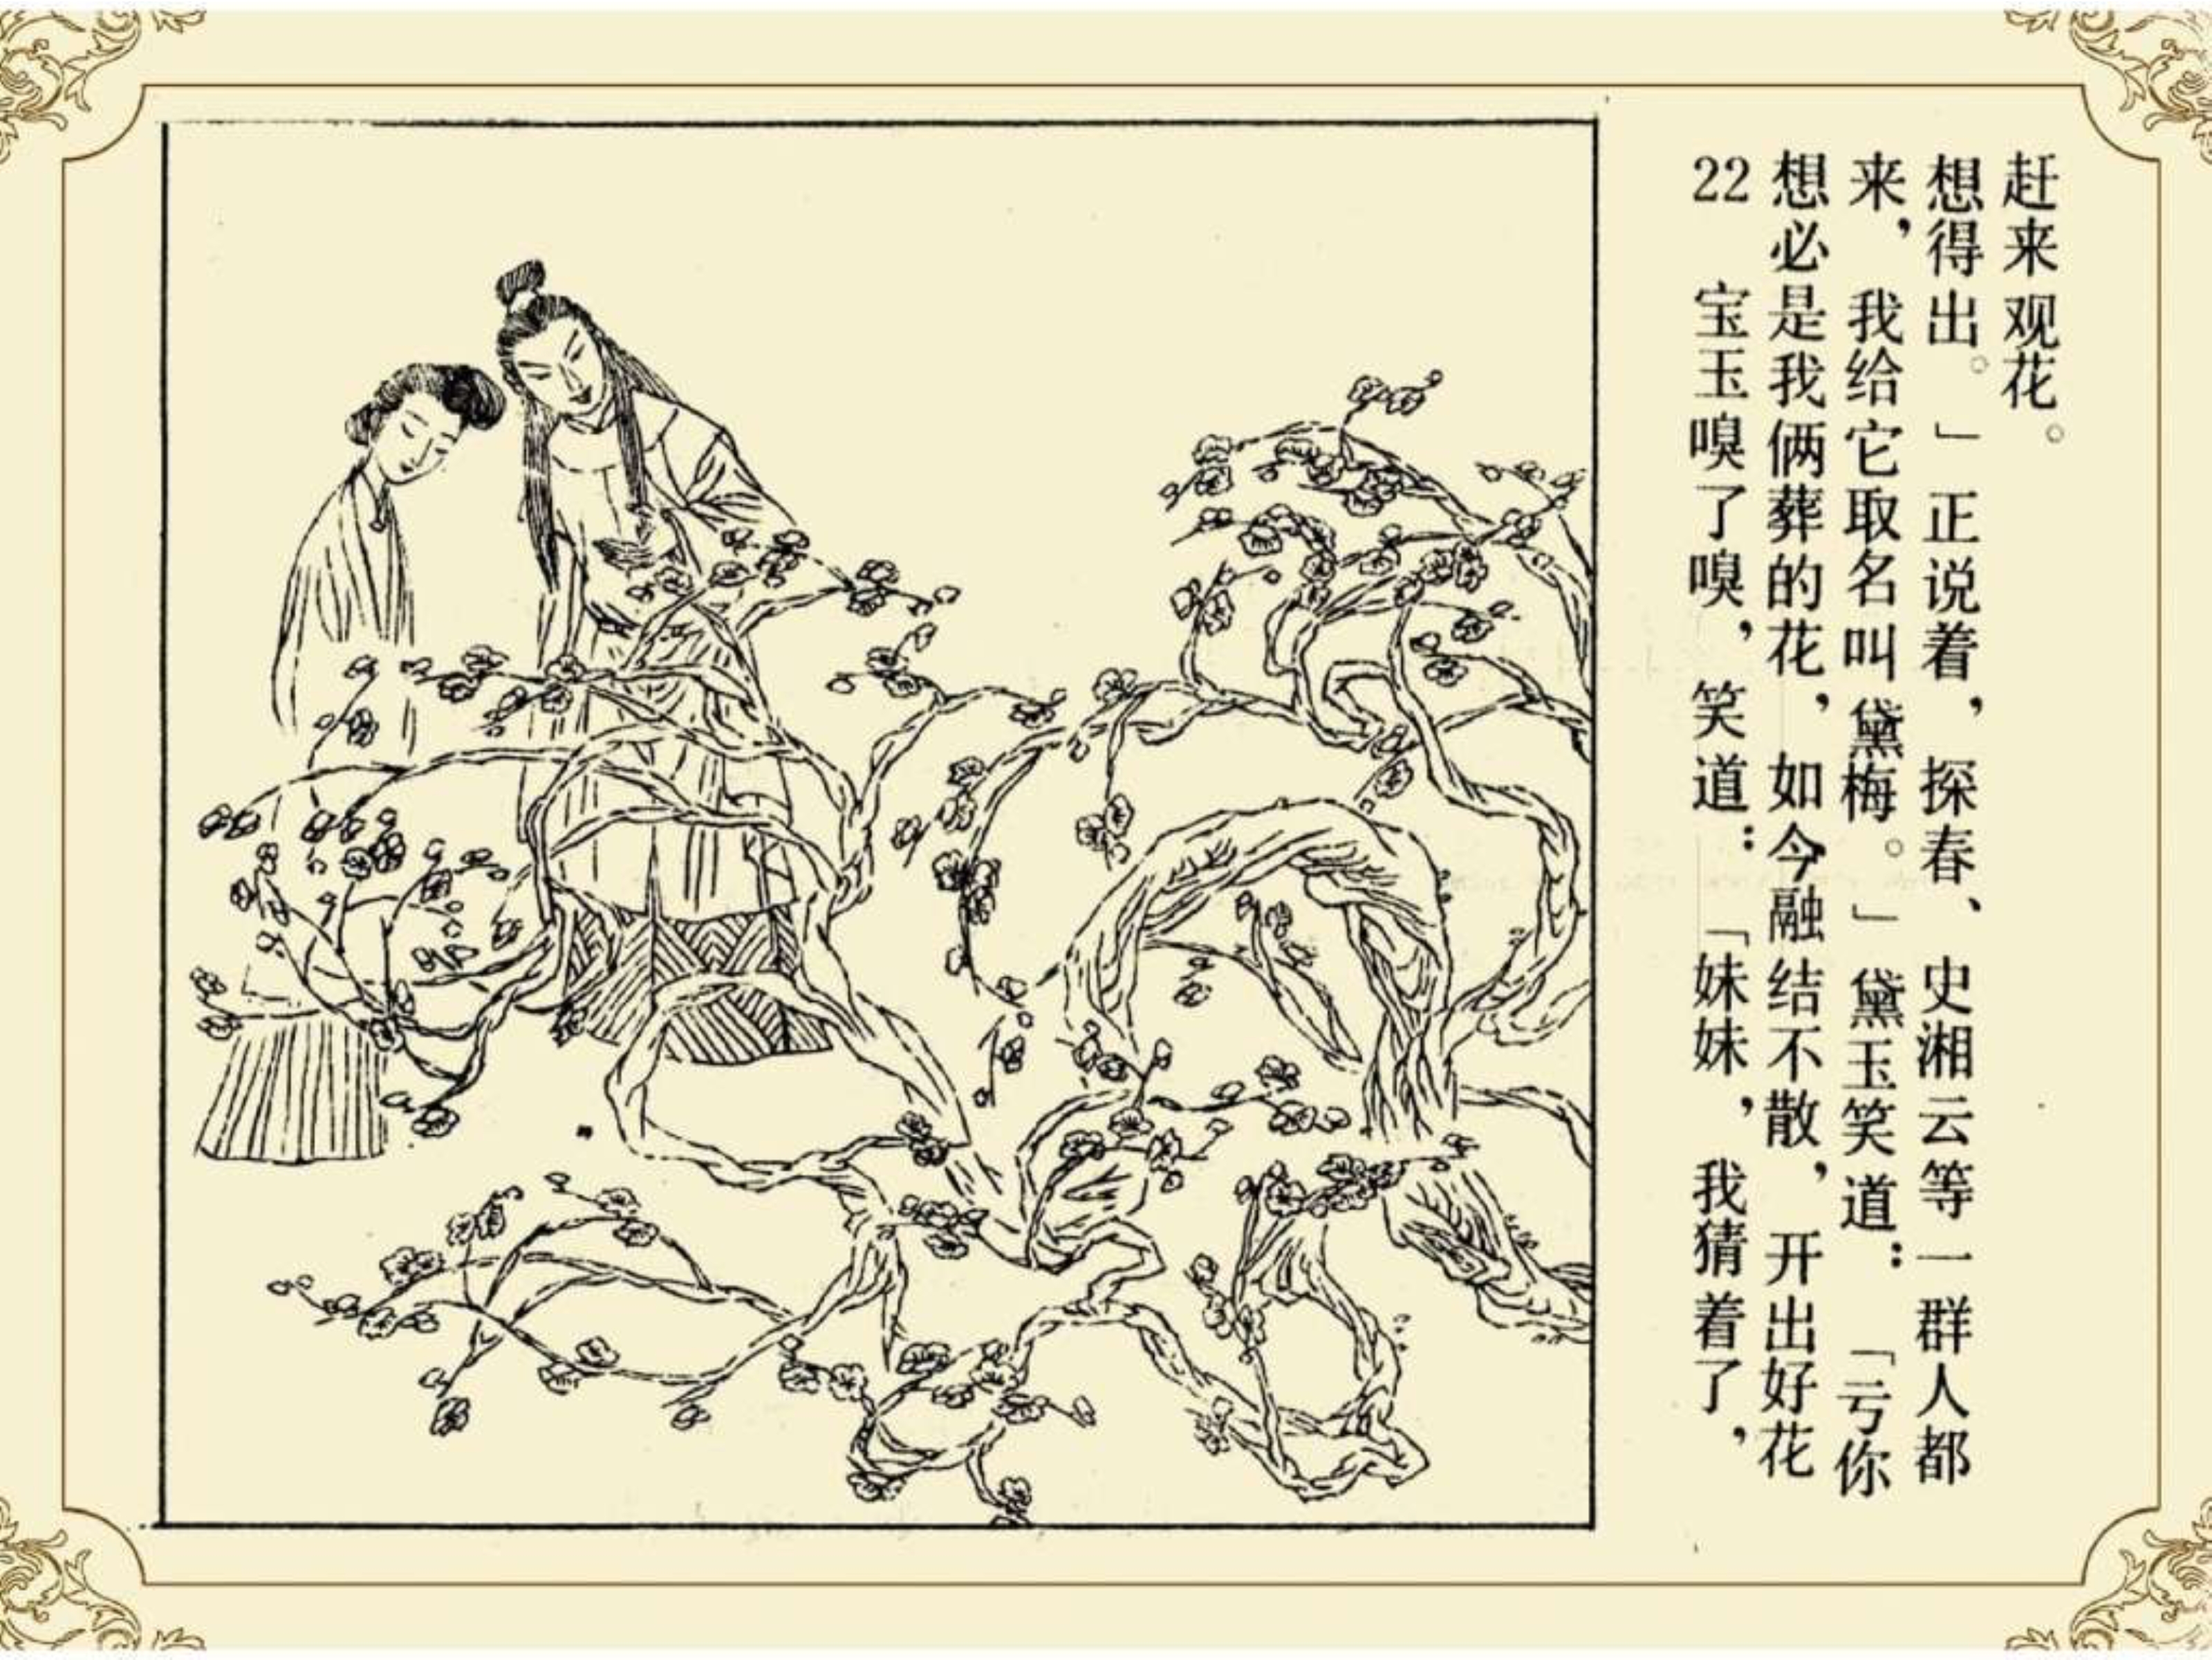 22 宝玉嗅了嗅，笑道：「妹妹，我猜着了，
想必是我俩葬的花，如今融结不散，开出好花
来，我给它取名叫黛梅。」黛玉笑道：「亏你
想得出。」正说着，探春、史湘云等一群人都
赶来观花。